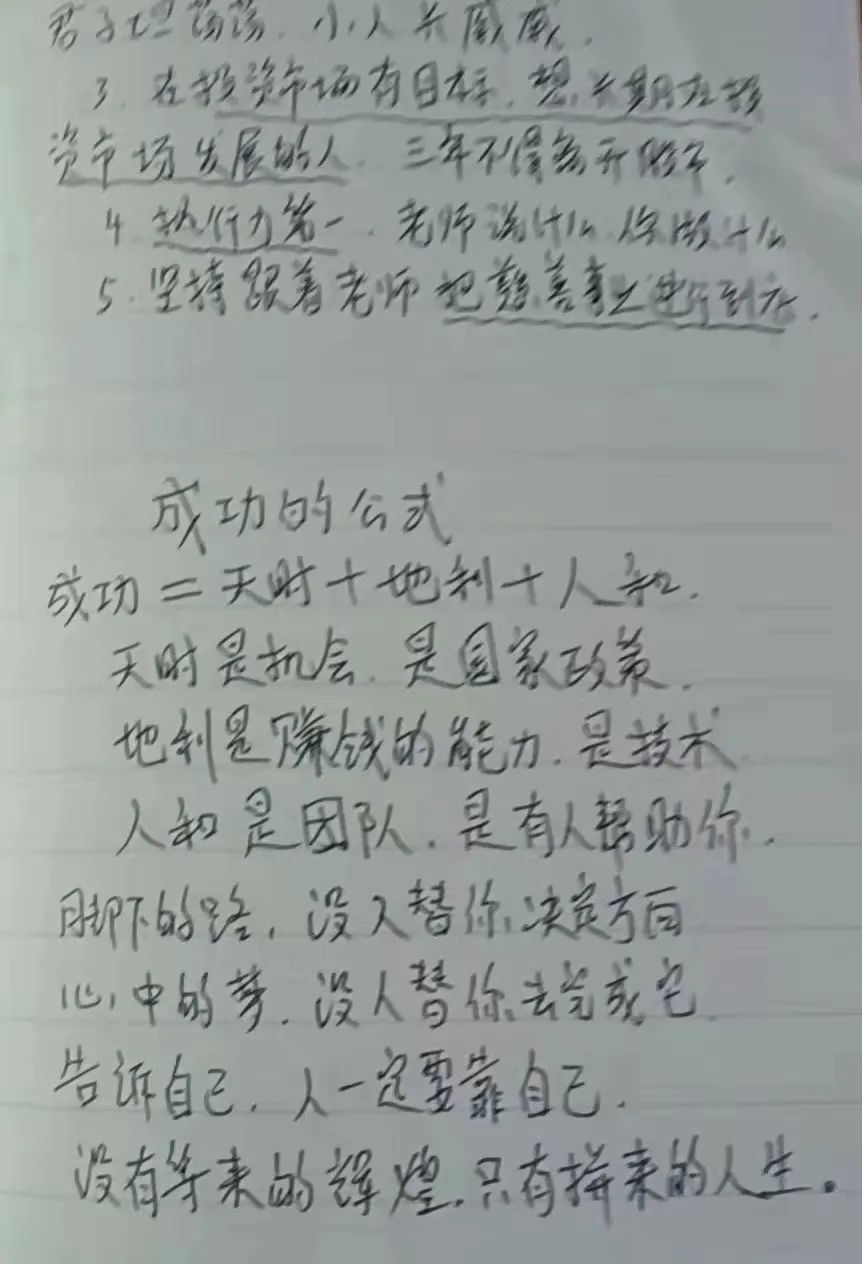 君子坦荡荡，小人长戚戚.
3. 在投资市场有目标，想长期在投
资市场发展的人 三年不得离开
4. 执行力第一，老师说什么 你做什么
5. 坚持跟着老师 把慈善事业进行到底.
成功的公式
成功=天时+地利+人和.
天时是机会，是国家政策.
地利是赚钱的能力.是技术
人和是团队.是有人帮助你.
脚下的路，没人替你决定方向
心中的梦.没人替你去完成它
告诉自己.人一定要靠自己.
没有等来的辉煌.只有拼来的人生。